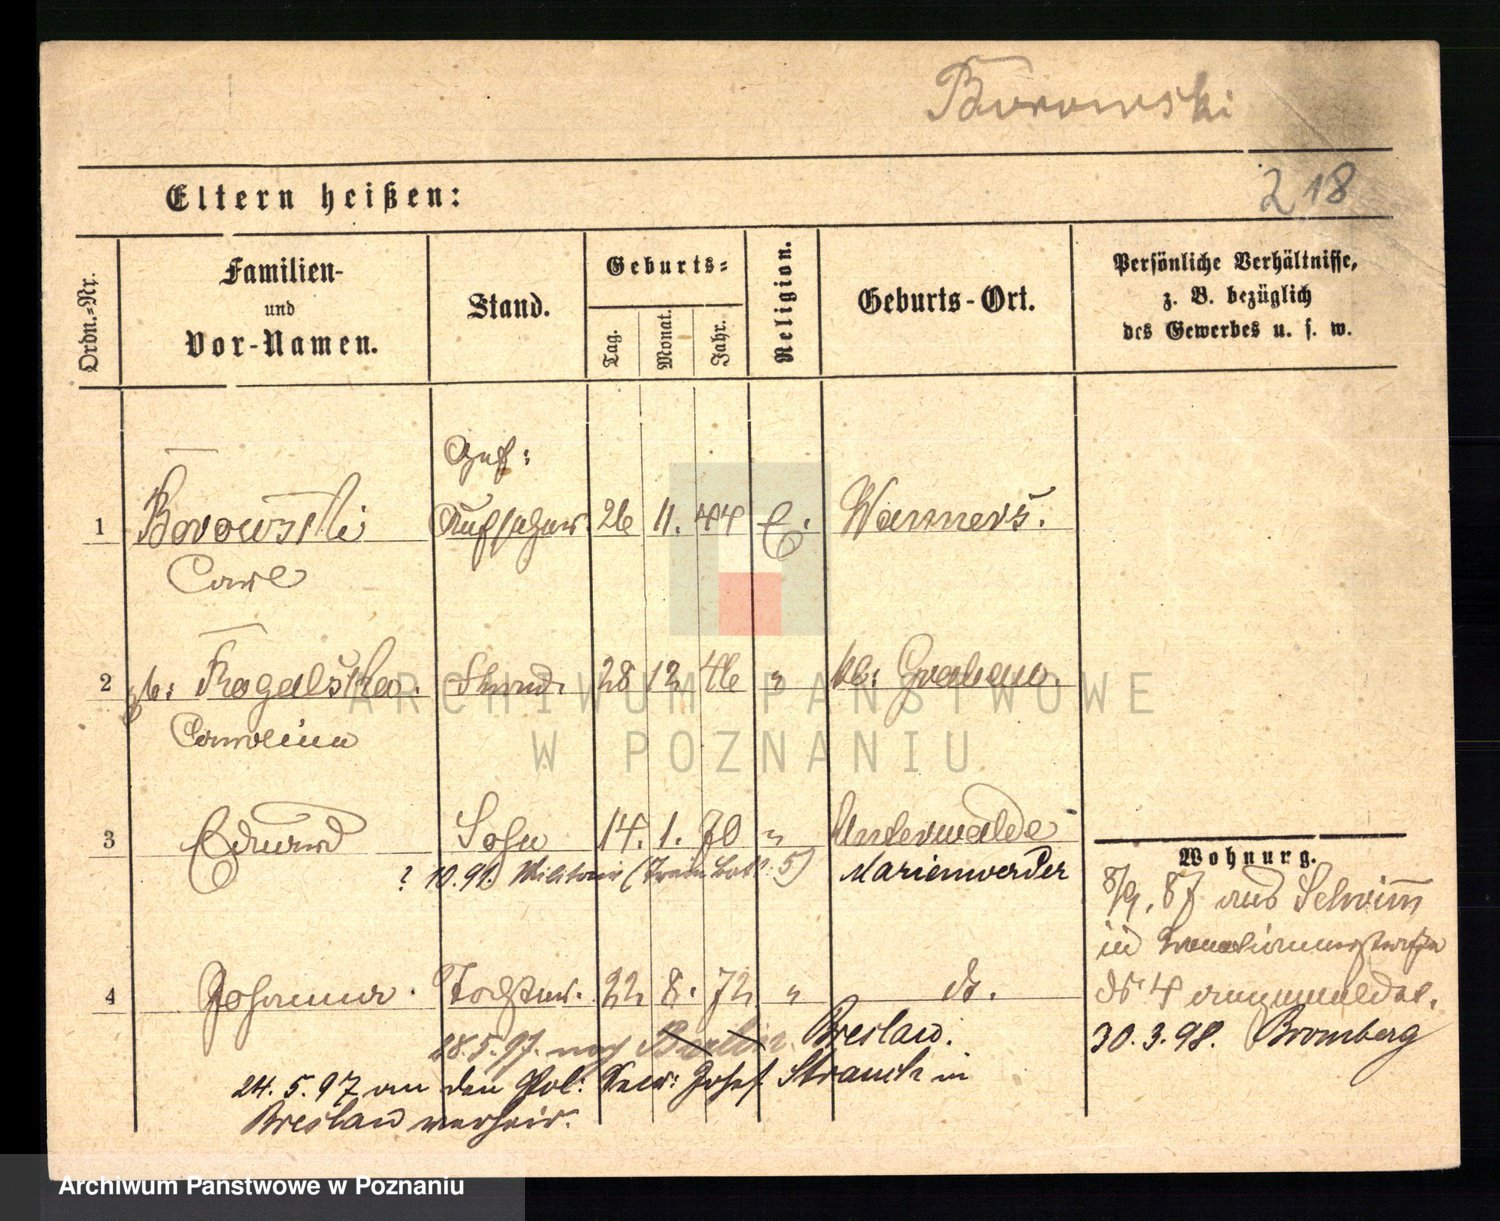 Borowski
218
Eltern heißen:
Ordn.-Nr.
Familien-
und
Vor-Namen.
Stand.
Geburts-
Tag.
Monat.
Jahr.
Religion.
Geburts-Ort.
Persönliche Verhältnisse,
z. B. bezüglich
des Gewerbes u. s. w.
Gef:
1 Borowski Aufseher. 26 11. 44 E.
Carl
2 Rogalska. 28 12 46 " kl: Grabau.
Carolina
3 Eduard Sohn 14. 1. 70 " Unterwalde
? 10.91. Militair (Train Bat. 5) Marienwerder
Wohnung.
8/9. 87 aus Schrimm
in
4 Johanna. Tochter. 22 8. 72 " do.
№ 4 angemeldet.
18.5.97. nach Berlin Breslau.
30.3.98. Bromberg
24.5.97 an den Pol: Secr: Josef Strauch in
Breslau verheir.
ARCHIWUM PAŃSTWOWE
W POZNANIU
Archiwum Państwowe w Poznaniu